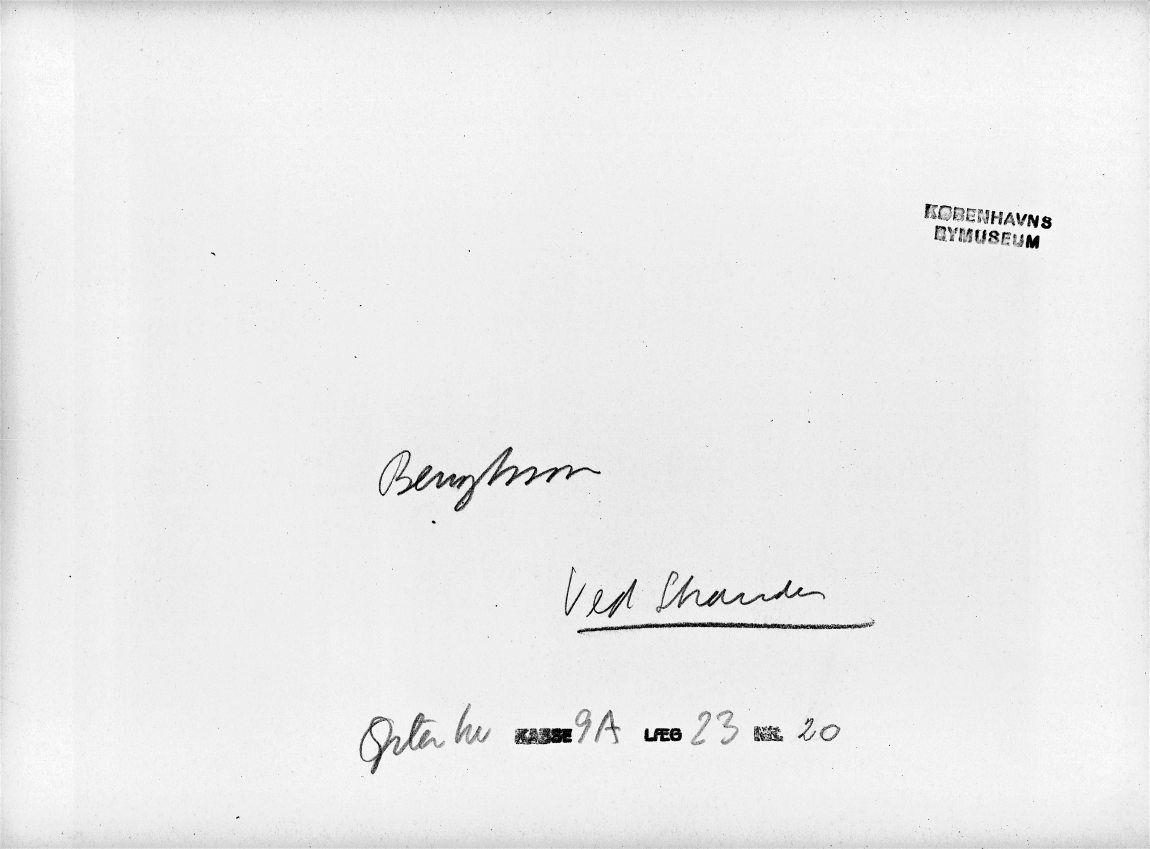 KØBENHAVNS
BYMUSEUM
Bengtsson
Ved Stranden
KASSE 9A LÆG 23 NR. 20